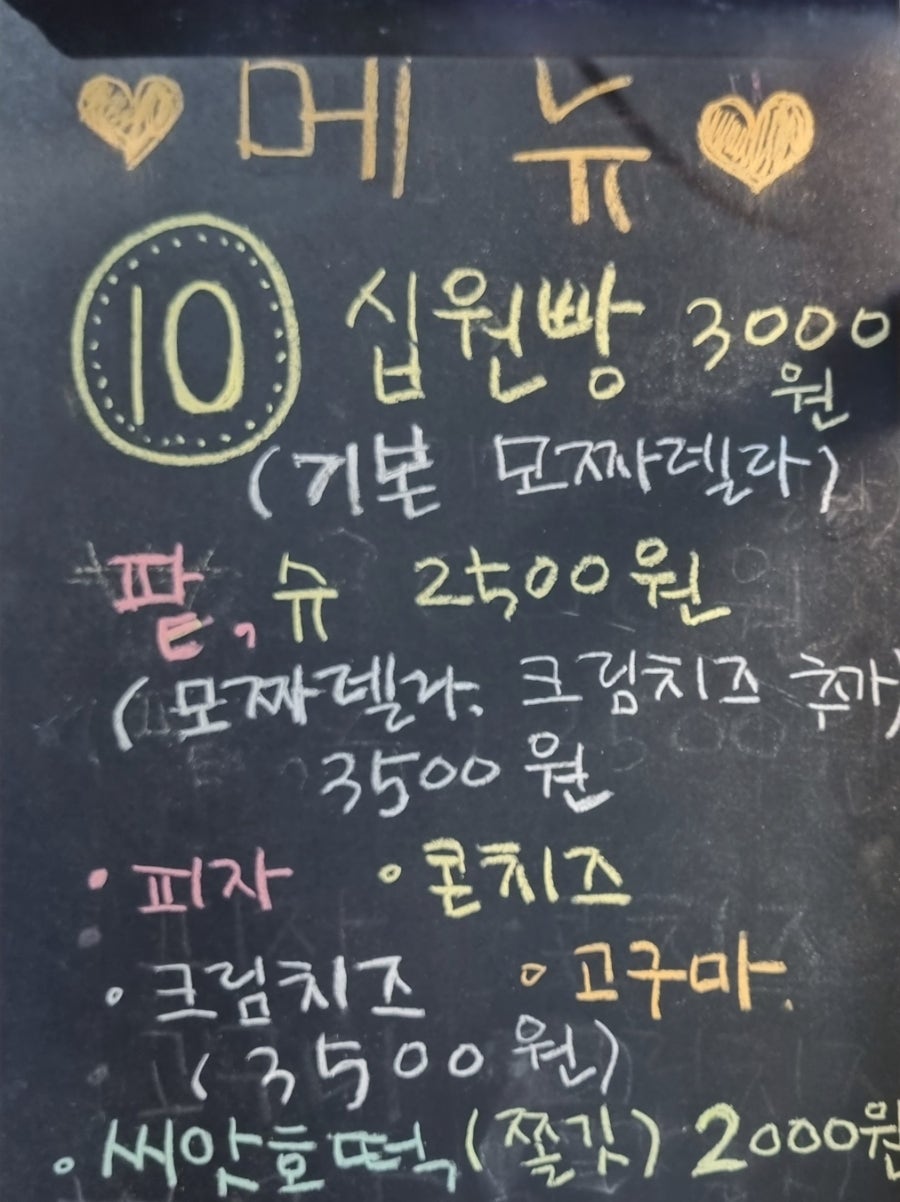 메뉴
10 십원빵 3000
원
(기본 모짜델라)
팥, 슈 2500원
(모짜델라. 크림치즈 추가)
3500원
• 피자 • 콘치즈
• 크림치즈 • 고구마.
(3500원)
• 씨앗호떡 (쫄깃) 2000원